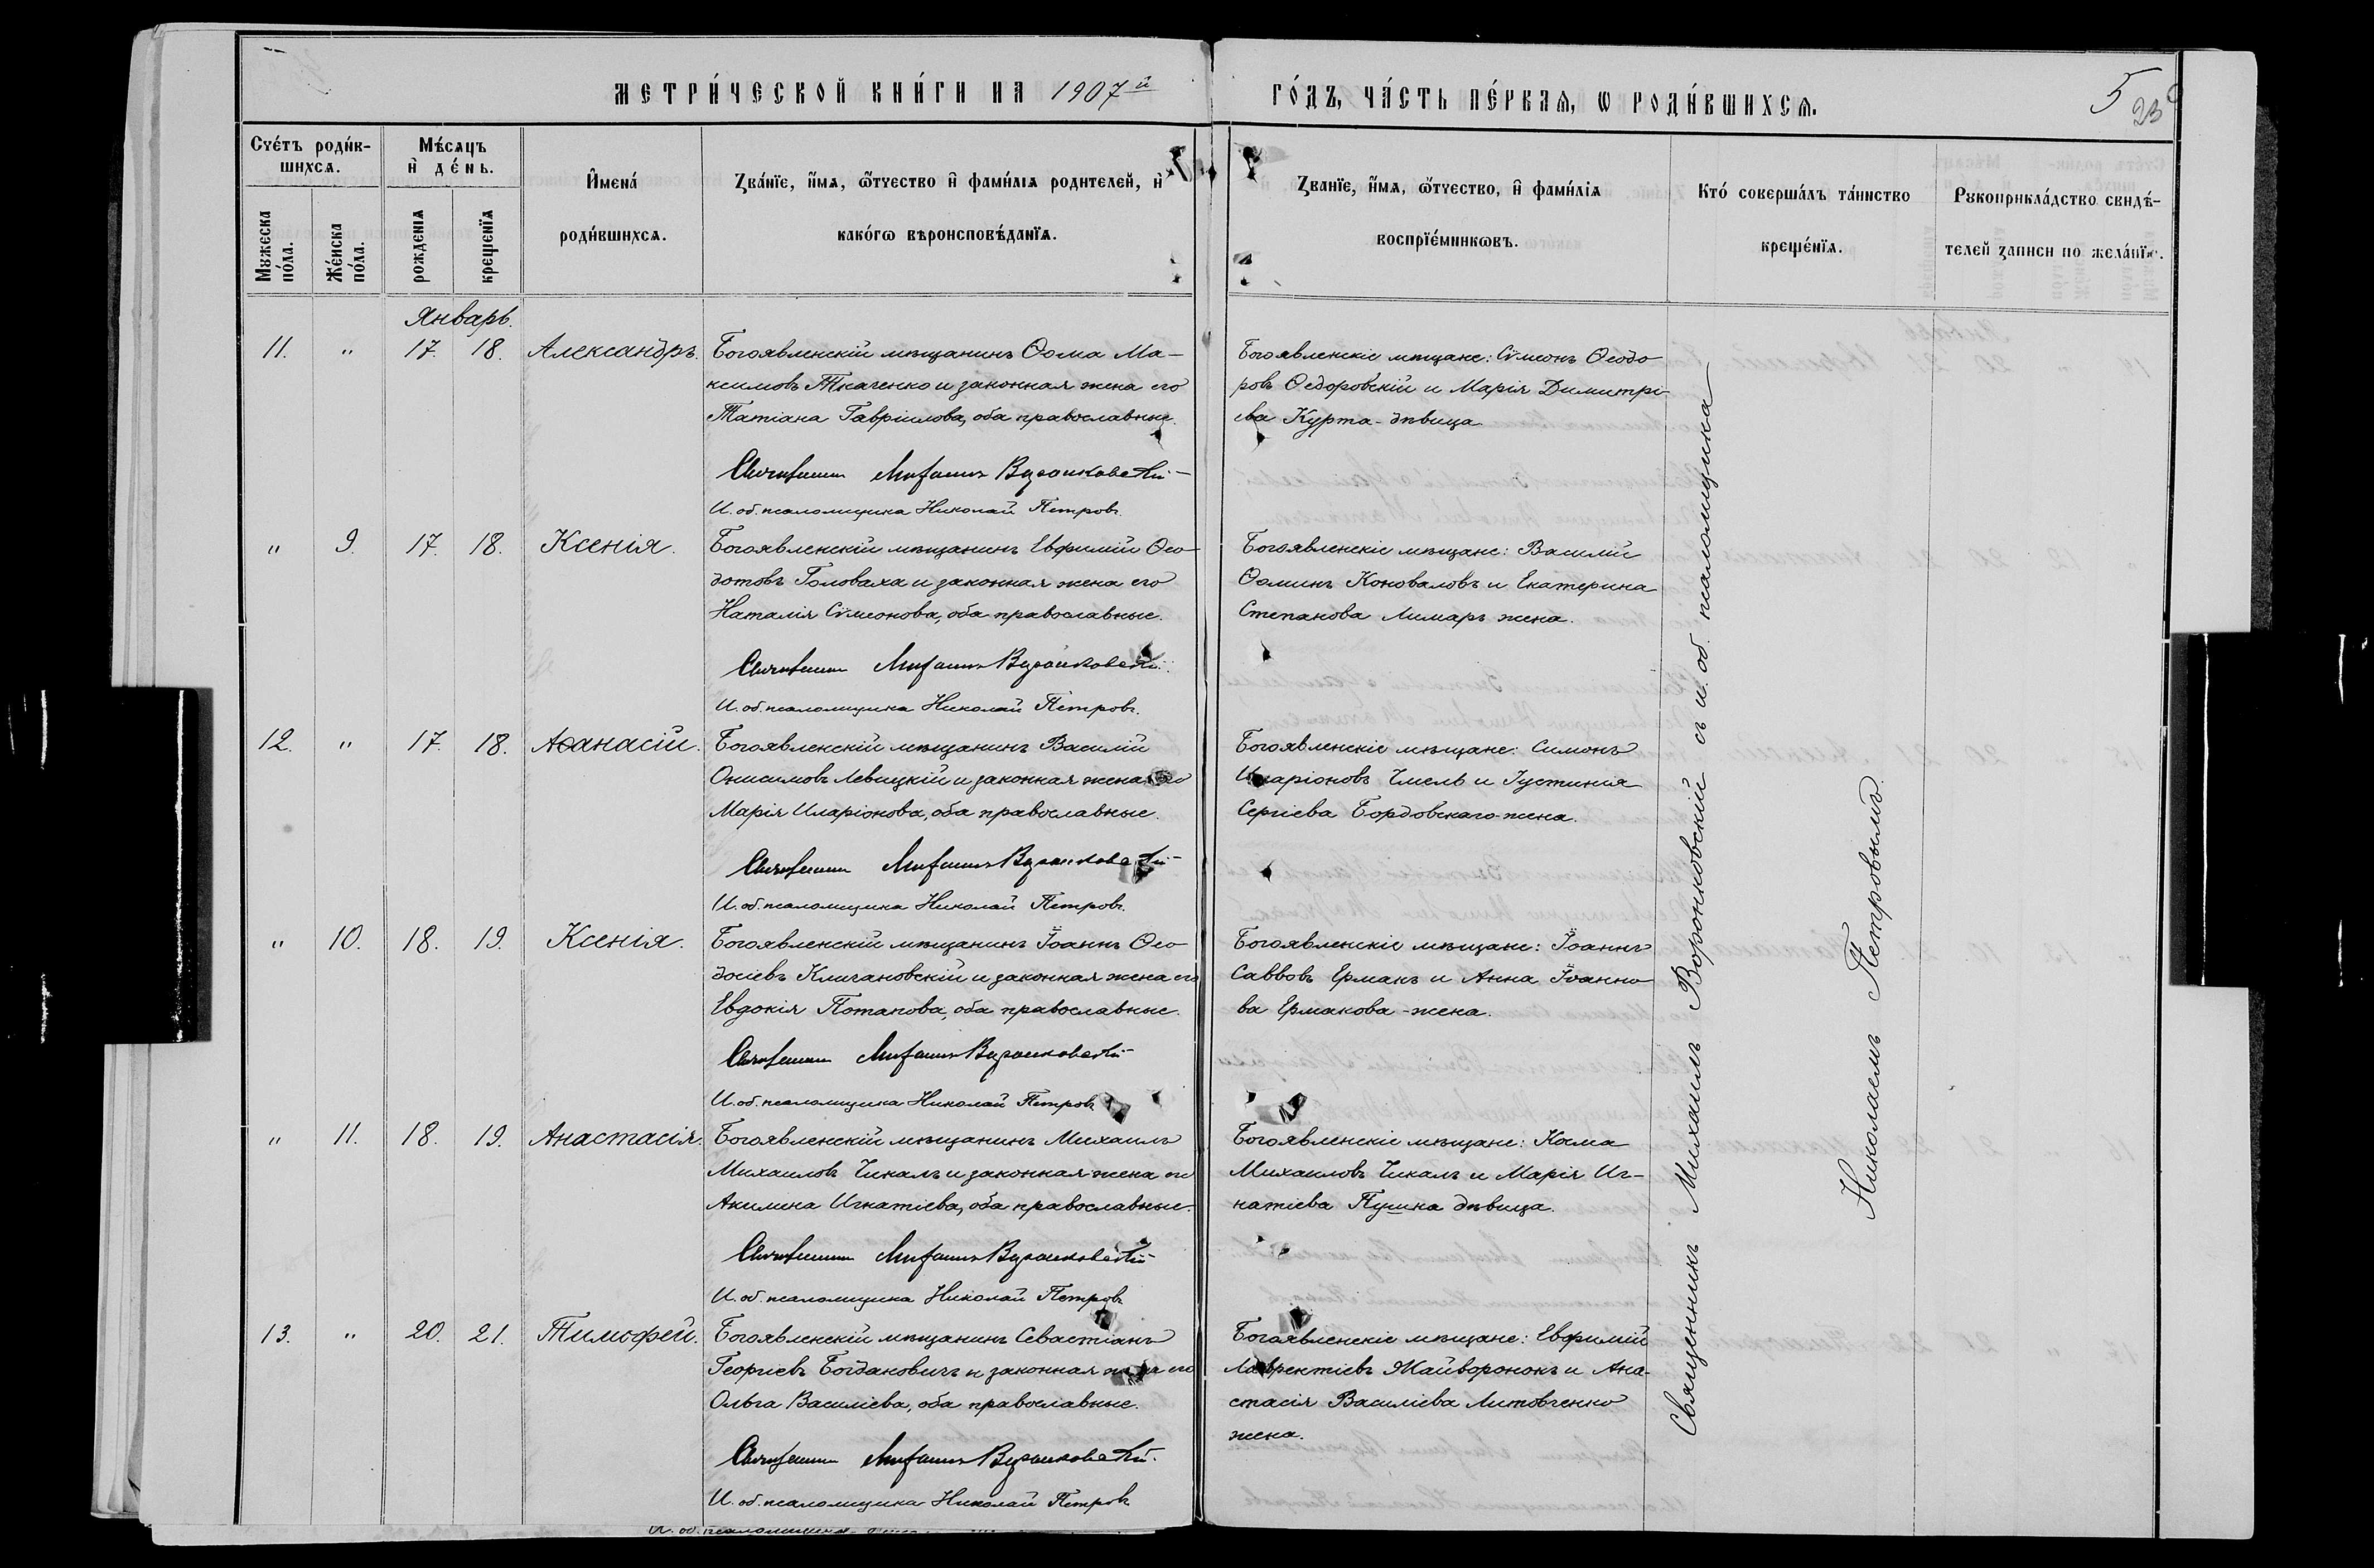 МЕТРИ́ЧЕСКОЙ КНИ́ГИ НА 1907й ГО́ДЪ, ЧА́СТЬ ПЕ́РВАѦ, Ѡ РОДИ́ВШИХСѦ.
5
23
Сче́тъ роди́в-
шихсѧ.
Мꙋжеска
по́ла.
Же́нска
по́ла.
Мѣ́сѧцъ
и҆ де́нь.
рожденїѧ
крещенїѧ
И҆мена́
роди́вшихсѧ.
Зва́нїе, и҆́мѧ, ѻ҆́тчество и҆ фамилїѧ родителей, и҆
како́гѡ вѣроисповѣ́данїѧ.
Званїе, и҆́мѧ, ѻ҆́тчество, и҆ фами́лїѧ
воспрїе́мникѡвъ.
Кто́ соверша́лъ та́инство
креще́нїѧ.
Рꙋкоприкла́дство свидѣ́-
телей записи по жела́нїю.
Январь.
11. " 17. 18. Александръ.
Богоявленскій мѣщанинъ Ѳома Ма-
ксимовъ Ткаченко и законная жена его
Татіана Гавріилова, оба православные.
Священникъ Михаилъ Воронковскій
И. об. псаломщика Николай Петровъ.
Богоявленскіе мѣщане: Сѵмеонъ Ѳеодо
ровъ Ѳедоровскій и Марія Димитрі-
ева Курта - дѣвица
" 9. 17. 18. Ксенія.
Богоявленскій мѣщанинъ Евѳимій Ѳео-
дотовъ Головаха и законная жена его
Наталія Сѵмеонова, оба православные.
Священникъ Михаилъ Воронковскій
И. об. псаломщика Николай Петровъ.
Богоявленскіе мѣщане: Василій
Ѳоминъ Коноваловъ и Екатерина
Степанова Лимаръ жена.
12. " 17. 18. Аѳанасій.
Богоявленскій мѣщанинъ Василій
Онисимовъ Левицкій и законная жена его
Марія Иларіонова, оба православные.
Священникъ Михаилъ Воронковскій
И. об. псаломщика Николай Петровъ.
Богоявленскіе мѣщане: Симонъ
Иларіоновъ Чмель и Іустинія
Сергіева Бордовскаго жена.
" 10. 18. 19. Ксенія.
Богоявленскій мѣщанинъ Іоаннъ Ѳео
досіевъ Кличановскій и законная жена его
Евдокія Потапова, оба православные.
Священникъ Михаилъ Воронковскій
И. об. псаломщика Николай Петровъ
Богоявленскіе мѣщане: Іоаннъ
Саввовъ Ермакъ и Анна Іоанно
ва Ермакова - жена.
" 11. 18. 19. Анастасія.
Богоявленскій мѣщанинъ Михаилъ
Михаиловъ Чикалъ и законная жена его
Акилина Игнатіева, оба православные.
Священникъ Михаилъ Воронковскій
И. об. псаломщика Николай Петровъ
Богоявленскіе мѣщане: Косма
Михаиловъ Чикалъ и Марія Иг-
натіева Пушка дѣвица.
13. " 20. 21. Тимоѳей.
Богоявленскій мѣщанинъ Севастіанъ
Георгіевъ Богдановичъ и законная жена его
Ольга Василіева, оба православные.
Священникъ Михаилъ Воронковскій.
И. об. псаломщика Николай Петровъ
Богоявленскіе мѣщане: Евѳимій
Лаврентіевъ Жайворонокъ и Ана-
стасія Василіева Литовченко
жена.
Священникъ Михаилъ Воронковскій съ и. об. псаломщика
Николаемъ Петровымъ.